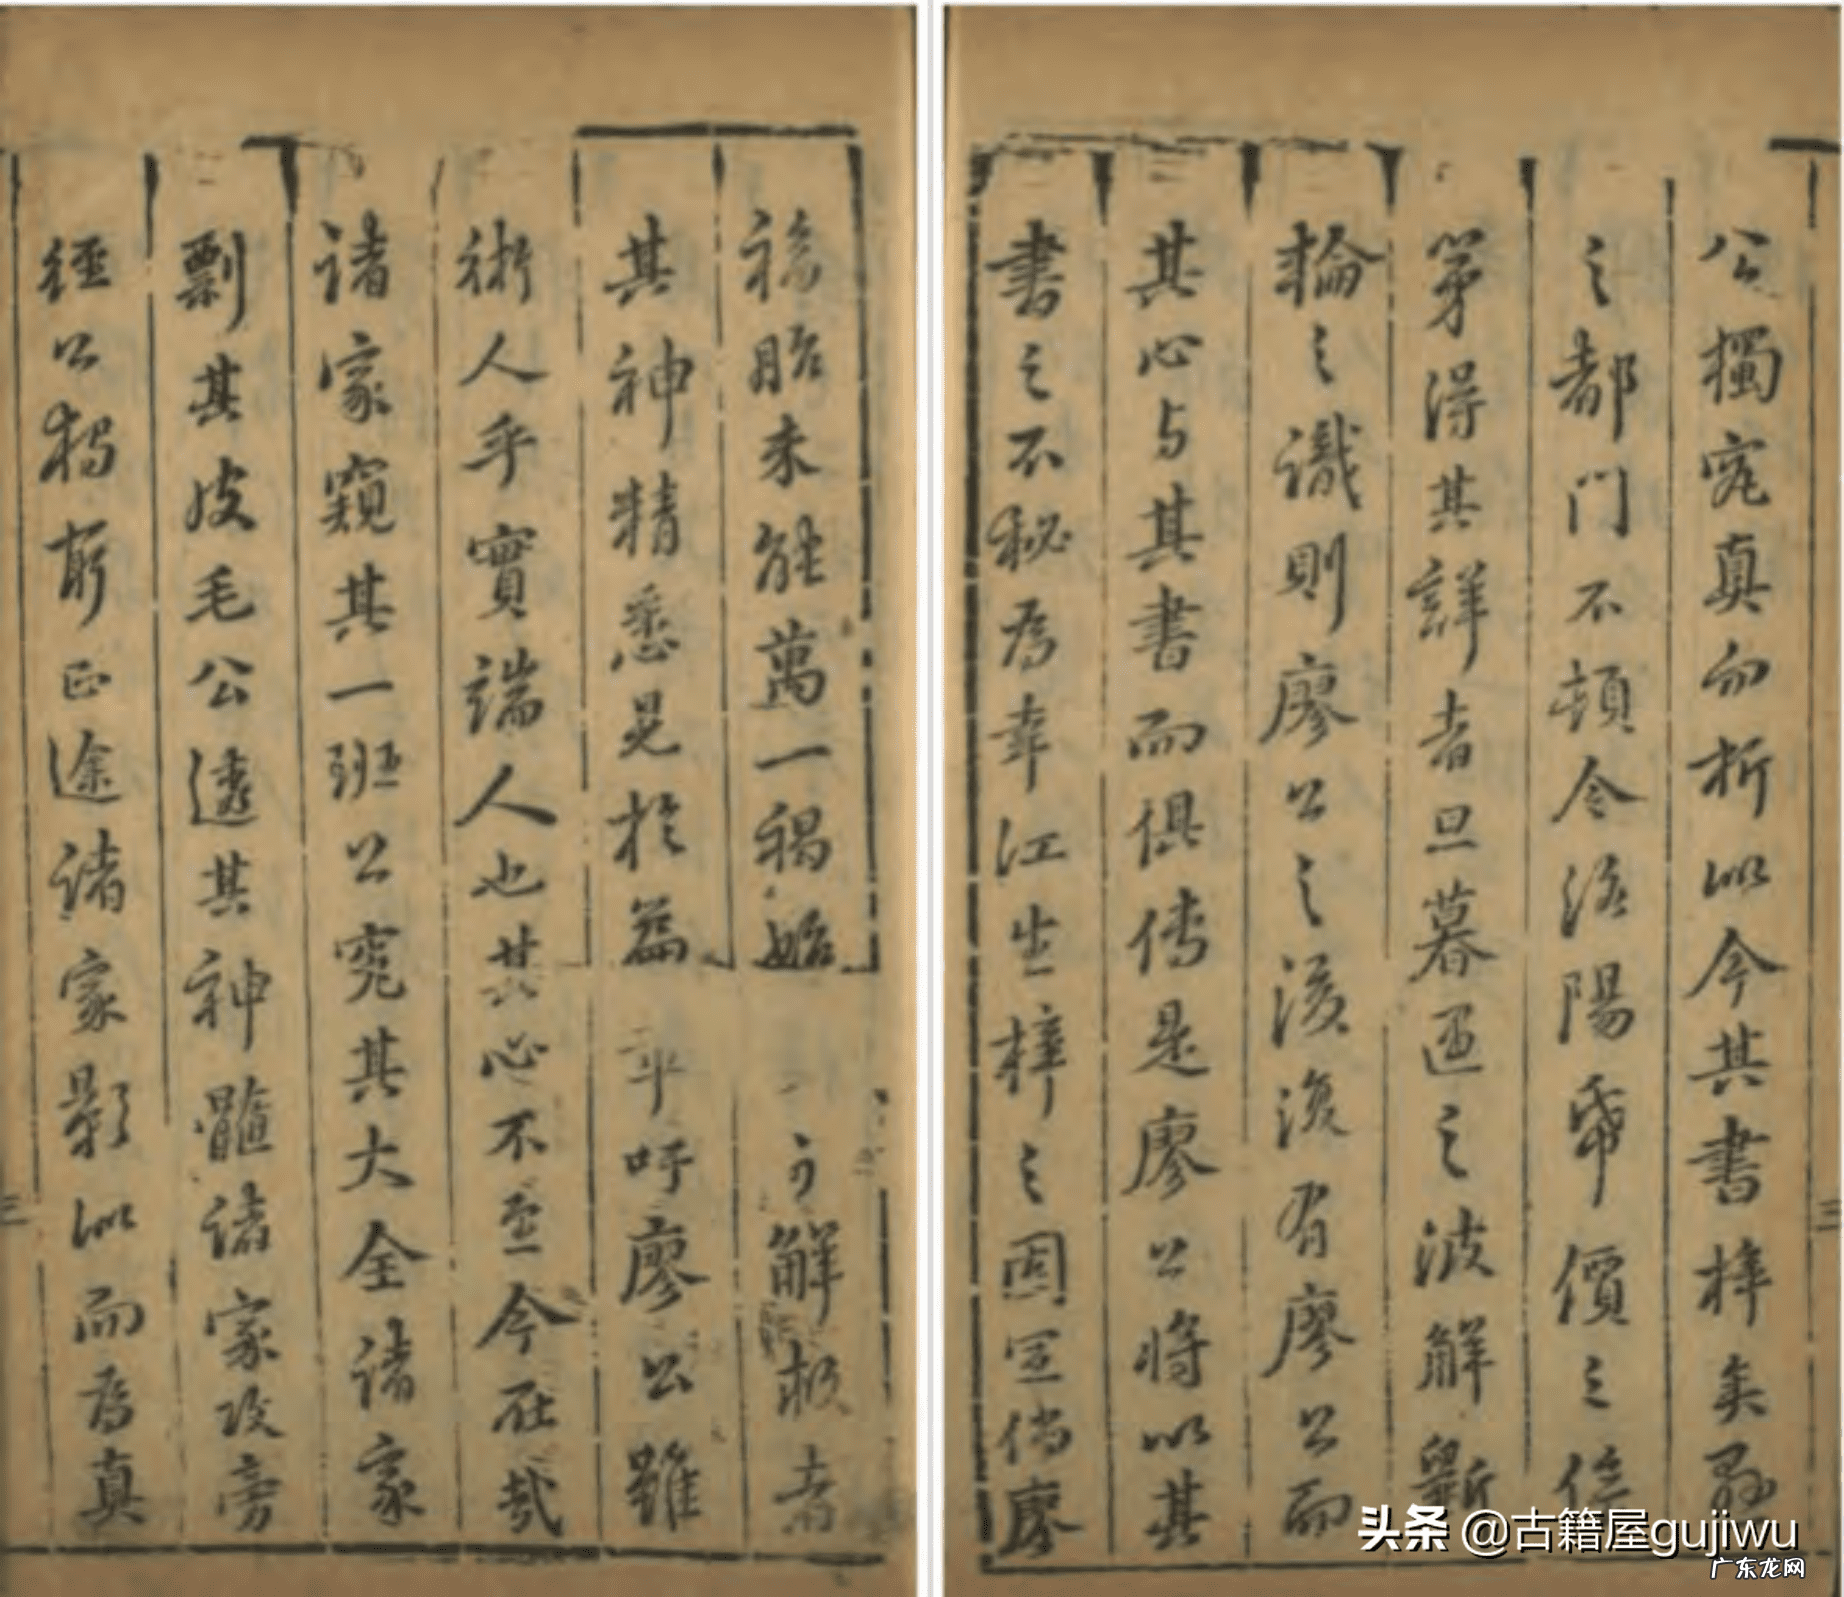 福胎未能萬一禍始解救者
其神精悉見於篇乎吁廖公雖
術人乎實端人也其心不至今在哉
诸家窺其一班公究其大全诸家
剽其皮毛公透其神髓诸家攻旁
徑公獨躬正途诸家影似而為真
三
公獨究真而析似今其書梓矣
之都門不頓令洛陽帋價之倍
第得其詳者旦暮遇之波解斲
輪之識則廖公之後復有廖公而
其心与其書而俱傳是廖公將以其
書之不秘為幸江生梓之固宜倘廖
三
头条 @古籍屋gujiwu
广东龙网